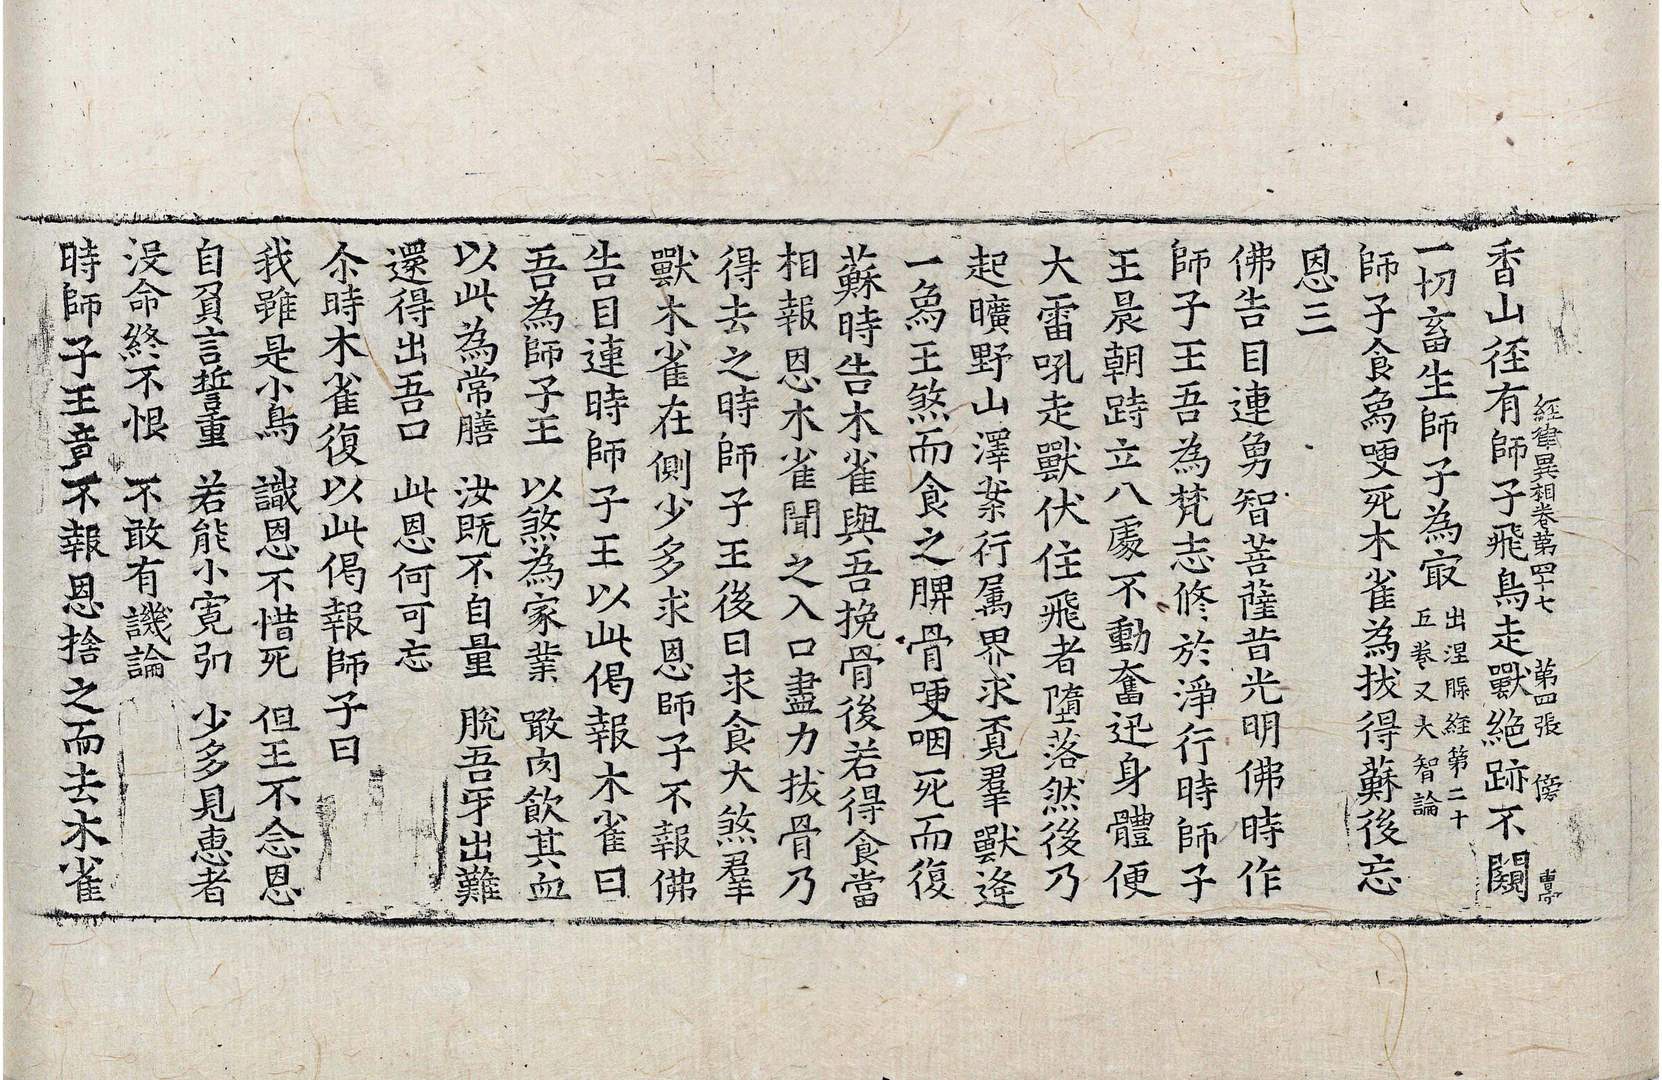 經律異相卷第四十七 第四張 傍
香山徑有師子飛鳥走獸絕跡不闚
一切畜生師子為㝡 出涅槃經第二十五卷又大智論
師子食象哽死木雀為拔得蘇後忘
恩三
佛告目連勇智菩薩昔光明佛時作
師子王吾為梵志修於淨行時師子
王晨朝跱立八處不動奮迅身體便
大雷吼走獸伏住飛者墮落然後乃
起曠野山澤案行属界求覔羣獸逢
一象王煞而食之髀骨哽咽死而復
蘇時告木雀與吾挽骨後若得食當
相報恩木雀聞之入口盡力拔骨乃
得去之時師子王後日求食大煞羣
獸木雀在側少多求恩師子不報佛
告目連時師子王以此偈報木雀曰
吾為師子王 以煞為家業 噉肉飲其血
以此為常膳 汝既不自量 脫吾牙出難
還得出吾口 此恩何可忘
尒時木雀復以此偈報師子曰
我雖是小鳥 識恩不惜死 但王不念恩
自負言誓重 若能小寬弘 少多見惠者
没命終不恨 不敢有譏論
時師子王竟不報恩捨之而去木雀